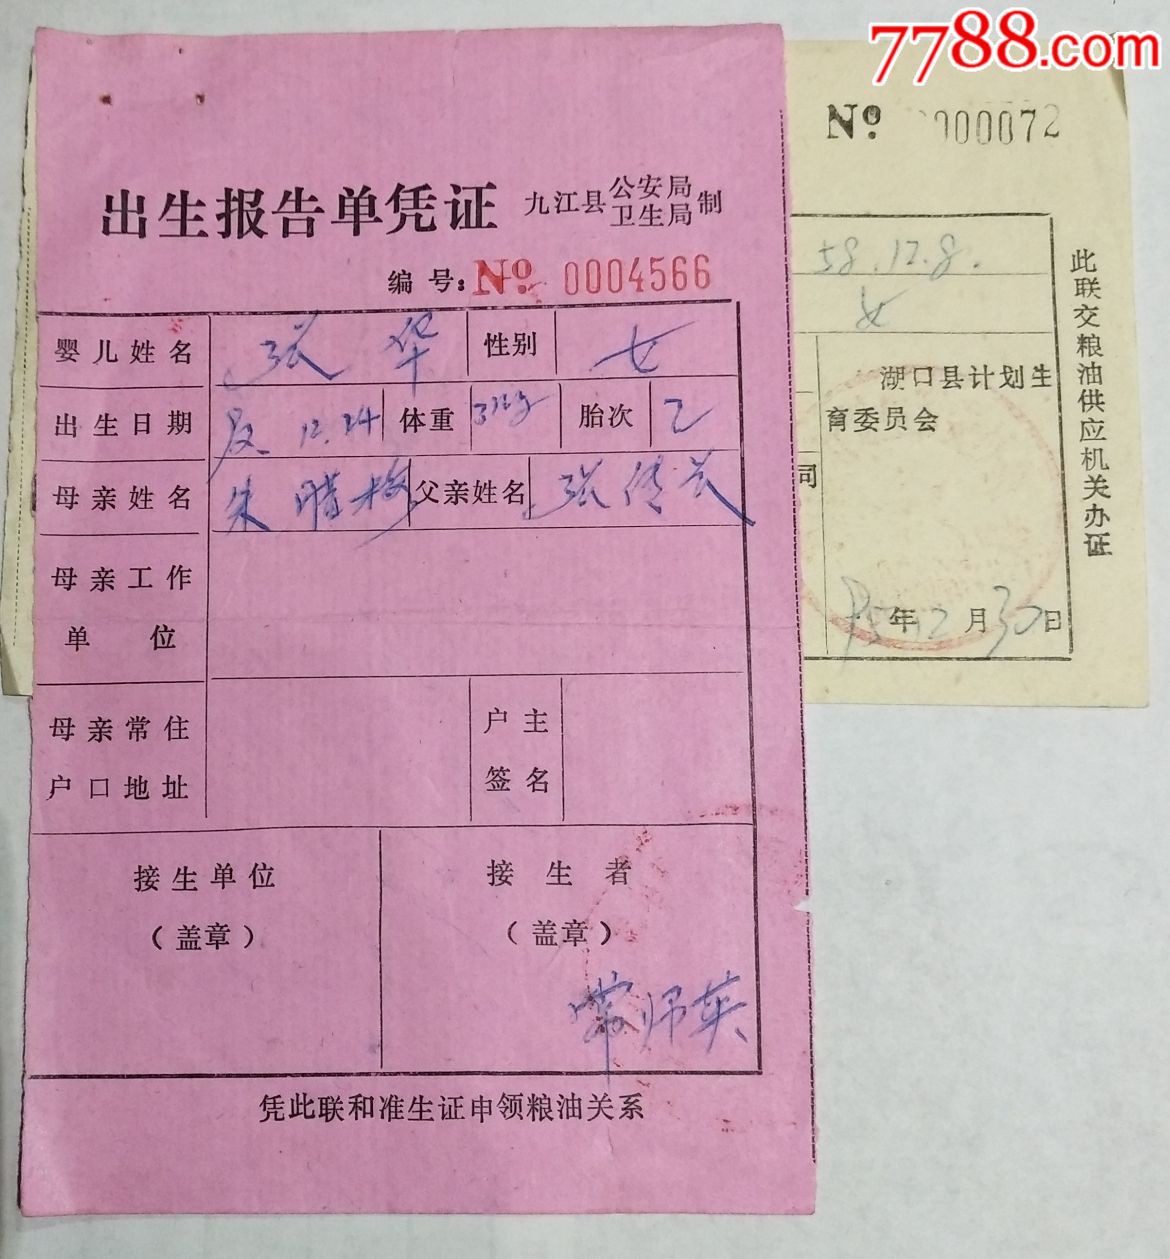 7788.com
出生报告单凭证 九江县公安局卫生局制
编号: № 0004566
婴儿姓名 张华 性别 女
出生日期 12.24 体重 胎次 乙
母亲姓名 朱腊梅 父亲姓名 张传
母亲工作
单位
母亲常住 户主
户口地址 签名
接生单位 接生者
（盖章） （盖章）
凭此联和准生证申领粮油关系
№ 000072
58.12.8.
女
湖口县计划生
育委员会
同
95年12月30日
此联交粮油供应机关办证